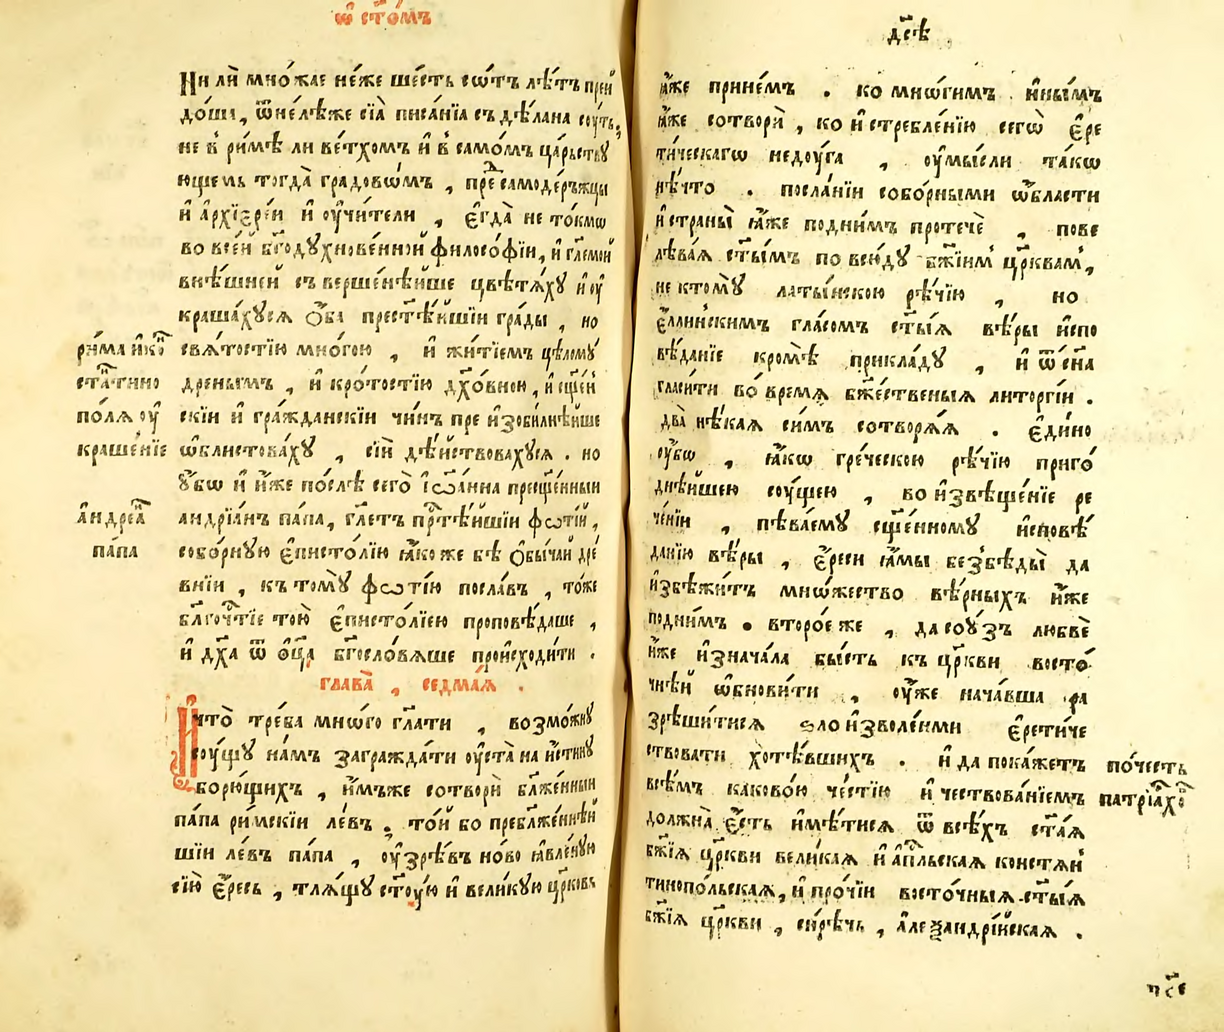 ѿ ст҃омъ
Ни ли̇̀ мно́жае не́же ше́сть сѡ́тъ лѣ́тъ преи̇
до́ша, ѿне́лѣже сїѧ̀ писа́нїа съдѣ́лана сѹ́ть,
не в̾ ри́мѣ ли ве́тхомъ и҆ в̾ само́мъ ца́рьствꙋ
ющемъ тогда̀ градовѡ́мъ , пре самоде́ръжцы
и҆ а҆рхїере́и и҆ ѹ҆чи́тели , є҆гда̀ не то́кмѡ
во все́й бг҃одꙋхнове́нной филосо́фїи, и҆ гл҃емой
внѣ́шней съверше́нѣйше цвѣтѧ́хꙋ и҆ ѹ҆
краша́хꙋсѧ ѻ҆́ба прест҃ѣ́йшїи гра́ды , но
свѧ́тостїю мно́гою , и҆ житїе́мъ цѣ́ломꙋ
дреным̾ъ , и҆ кро́тостїю дх҃о́вною , и҆ сщ҃е́н̾
скїи и҆ гра́жданскїи чи́нъ пре и҆зоби́лнѣйше
ѡ҆блистова́хꙋ , сїѝ дѣ́йствовахꙋсѧ . но
ᲂу҆́бѡ и҆ и҆́же по́слѣ сего̀ і҆ѡа́нна пресщ҃е́нныи
андрїа́нъ па́па, гл҃етъ прⷭ҇тѣ́йшїи фѡті́й ,
собо́рнꙋю є҆писто́лїю ꙗ҆́коже бѣ̀ ѻ҆бы́чай дре́
внїи , къ томꙋ̀ фѡті́ю посла́въ , то́же
бл҃гоч҇тїе тою̀ є҆писто́лїею проповѣ́даше ,
и҆ дх҃а ѿ ѻ҆ц҃а̀ бг҃осло́вѧше происходи́ти .
глава̀ , седма́ѧ .
И҆ что̀ тре́ба мнѡ́го гл҃ати , возмо́жнꙋ
сѹ́щꙋ на́мъ загражда́ти ѹ҆ста̀ на и҆́стинꙋ
борю́щихъ , и҆́мъже сотворѝ бл҃же́нныи
па́па ри́мскїи ле́въ . то́й бо пребл҃же́ннѣй
шїи ле́въ па́па , ѹ҆зрѣ́въ но́во ꙗ҆вле́нꙋю
сїю̀ є҆́ресь , тлѧ́щꙋ ст҃ꙋ́ю и҆ вели́кꙋю цр҃ковь
ри́ма и҆ ко҇
ста҇тино
по́лѧ ѹ҆
краше́нїе
а҆ндреа҇
па́па
дс҃ѣ
ꙗ҆́же прїи́мъ . ко мнѡ́гимъ и҆ны́мъ
ꙗ҆́же сотворѝ , ко и҆стребле́нїю сегѡ̀ є҆ре
ти́ческагѡ недѹ́га , ѹ҆мы́сли та́кѡ
нѣ́что . посла́нїи собо́рными ѡ҆́бласти
и҆ страны̀ ꙗ҆́же подни́мъ протечѐ , пове
лѣва́ѧ ст҃ы́мъ повсю́дꙋ бж҃їим̾ цр҃квам̾ ,
не ктомꙋ̀ латы́нскою рѣ́чїю , но
є҆́ллинскимъ гла́сомъ ст҃ы́ѧ вѣ́ры и҆спо
вѣ́данїе кромѣ̀ прикла́дꙋ , и҆ ѿ сн҃а
гласи́ти во́ времѧ бж҃е́ственыѧ литоргі́и .
два̀ нѣ́каѧ си́мъ сотворѧ́ѧ . є҆ди́но
ѹ҆́бѡ , ꙗ҆́кѡ гре́ческою рѣ́чїю приго́
днѣйшею сѹ́щею , во и҆звѣще́нїе ре
че́нїи , пѣва́емꙋ сщ҃е́нномꙋ и҆сповѣ́
данїю вѣ́ры , є҆́реси ꙗ҆́мы безбѣды̀ да
и҆збѣжи́тъ мно́жество вѣ́рныхъ и҆́же
подни́мъ . второ́е же , да сою́зъ любвѐ
и҆́же и҆знача́ла бы́сть къ цр҃кви восто́
чнѣй ѡ҆бнови́ти , ѹ҆же нача́вша ра
зрѣши́тисѧ ѕлоизволе́нми є҆рети́че
ствовати хотѣ́вшихъ . и҆ да пока́жетъ
всѣ́мъ каково́ю че́стїю и҆ чествова́нїемъ
должна̀ є҆́сть и҆мѣ́тисѧ ѿ всѣ́хъ ст҃а́ѧ
бж҃їѧ цр҃кви вели́каѧ и҆ ап҃льскаѧ констѧн̾
тинопо́льскаѧ, и҆ про́чїи восто́чныѧ ст҃ы́ѧ
бж҃їѧ цр҃кви , си́рѣчь , а҆леѯандрі́йскаѧ .
по́честь
патрїа́хо҇